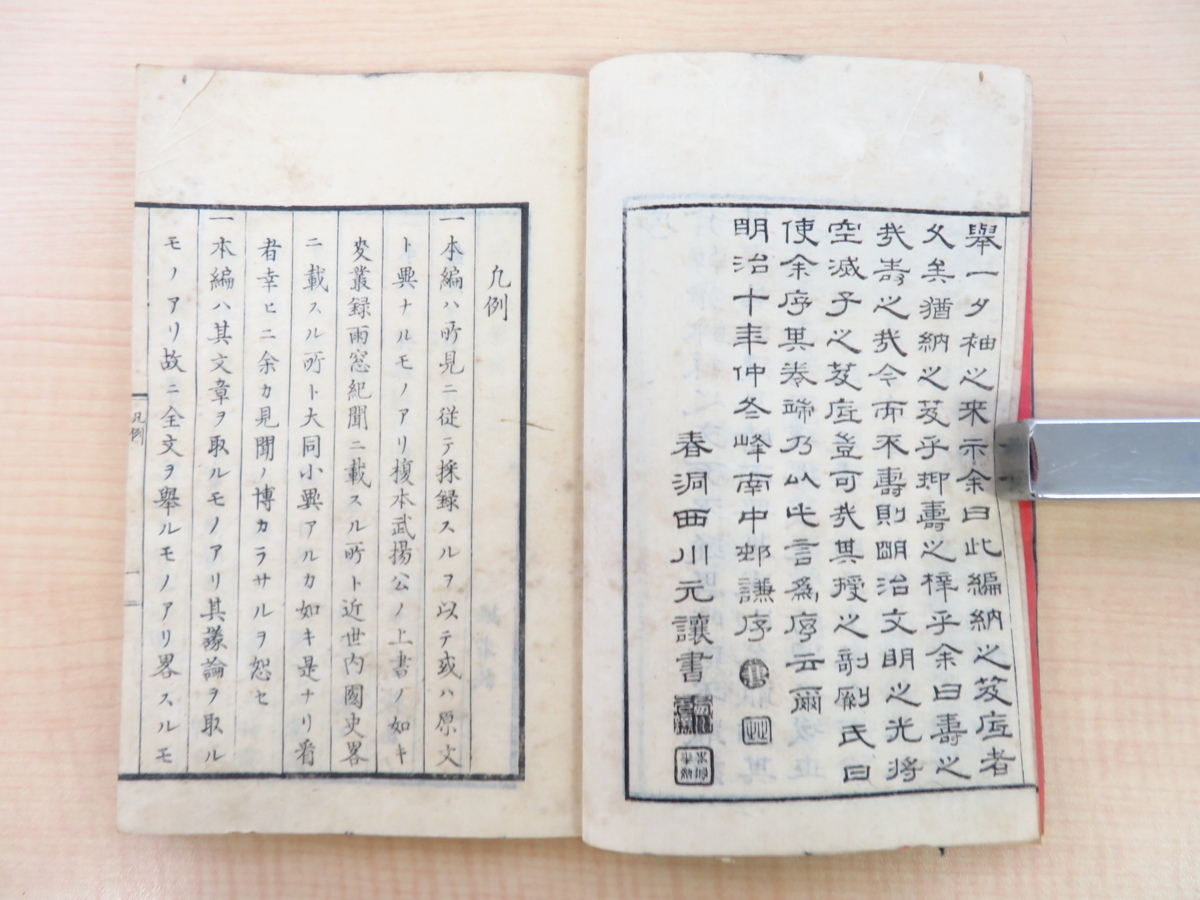 舉一夕袖之來示余曰此編納之笈底者
久矣猶納之笈乎抑壽之梓乎余曰壽之
哉壽之哉今而不壽則明治文明之光將
空滅于之笈底豈可哉其授之剞劂氏曰
使余序其卷端乃以此言爲序云爾
明治十年仲冬峰南中邨謙序
春洞西川元讓書
凡例
一本編ハ所見ニ従テ採録スルヲ以テ或ハ原文
ト異ナルモノアリ榎本武揚公ノ上書ノ如キ
叢録雨窓紀聞ニ載スル所ト近世内國史畧
ニ載スル所ト大同小異アルカ如キ是ナリ看
者幸ヒニ余カ見聞ノ博カラサルヲ恕セ
一本編ハ其文章ヲ取ルモノアリ其議論ヲ取ル
モノアリ故ニ全文ヲ舉ルモノアリ畧スルモ
凡例
一